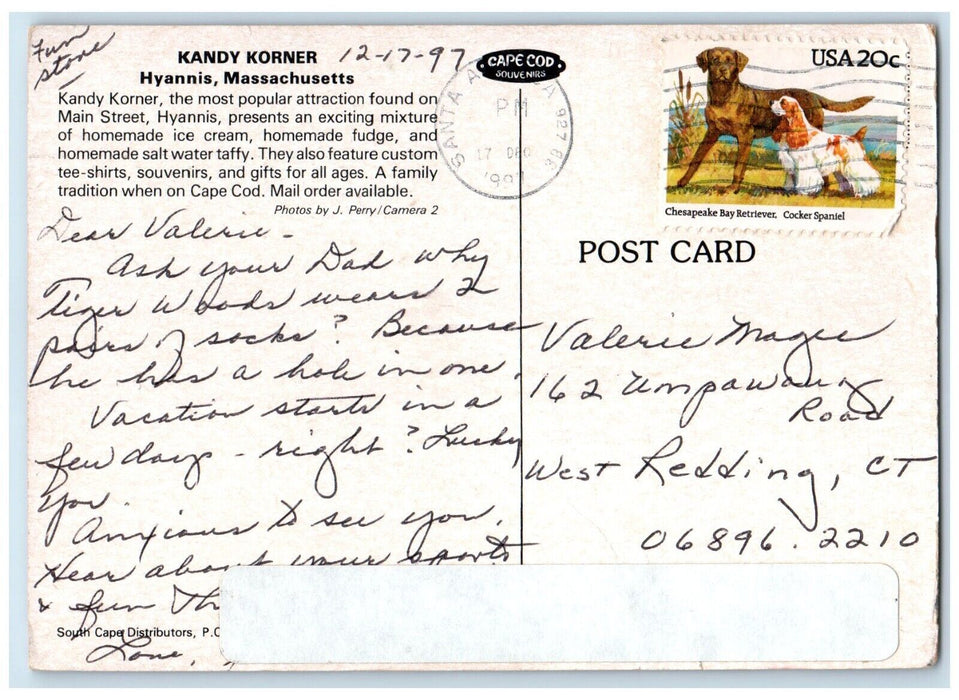 Fun
store
KANDY KORNER
12-17-97
Hyannis, Massachusetts
Kandy Korner, the most popular attraction found on
Main Street, Hyannis, presents an exciting mixture
of homemade ice cream, homemade fudge, and
homemade salt water taffy. They also feature custom
tee-shirts, souvenirs, and gifts for all ages. A family
tradition when on Cape Cod. Mail order available.
Photos by J. Perry/Camera 2
CAPE COD
SOUVENIRS
SANTA A
PM
17 DEC
USA 20c
Chesapeake Bay Retriever, Cocker Spaniel
POST CARD
Dear Valerie -
Ask your Dad why
Tiger Woods wears 2
pairs of socks? Because
he has a hole in one.
Vacation starts in a
few days - right? Lucky
you.
Anxious to see you.
Hear about your sports
& fun
South Cape Distributors, P.O
Love,
Valerie Magee
162 Umpawaug
Road
West Redding, CT
06896.2210